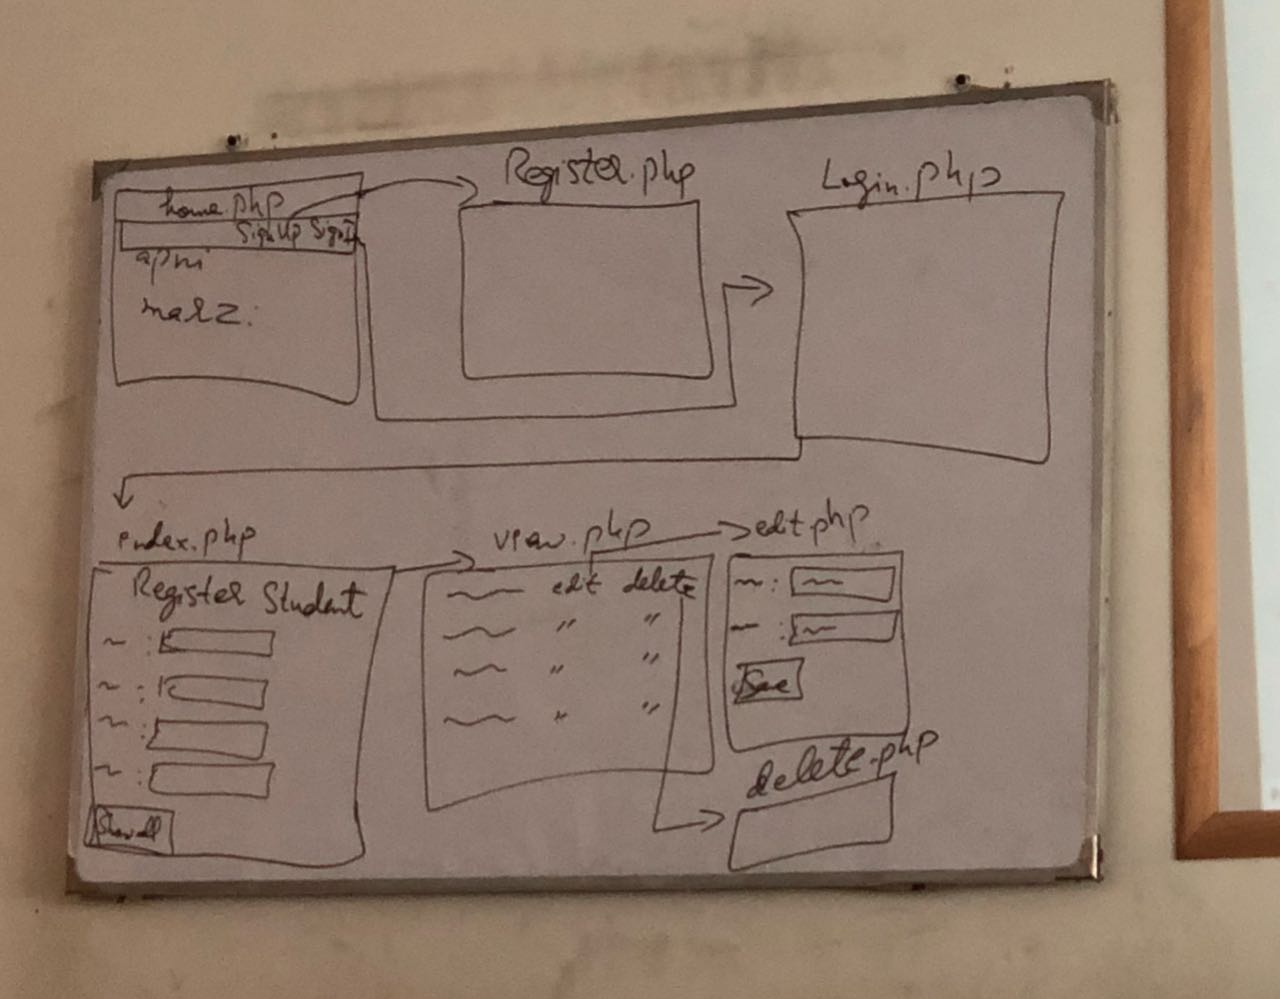 home.php
SignUp SignIn
apni
marz.
Register.php
Login.php
index.php
Register Student
Show all
view.php
edit delete
" "
" "
" "
edit.php
Save
delete.php